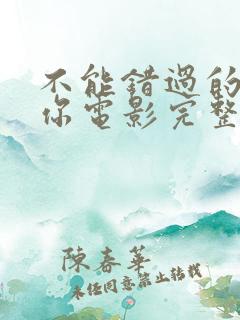 不能错過的
你電影完整
陳春華
未经同意禁止转载